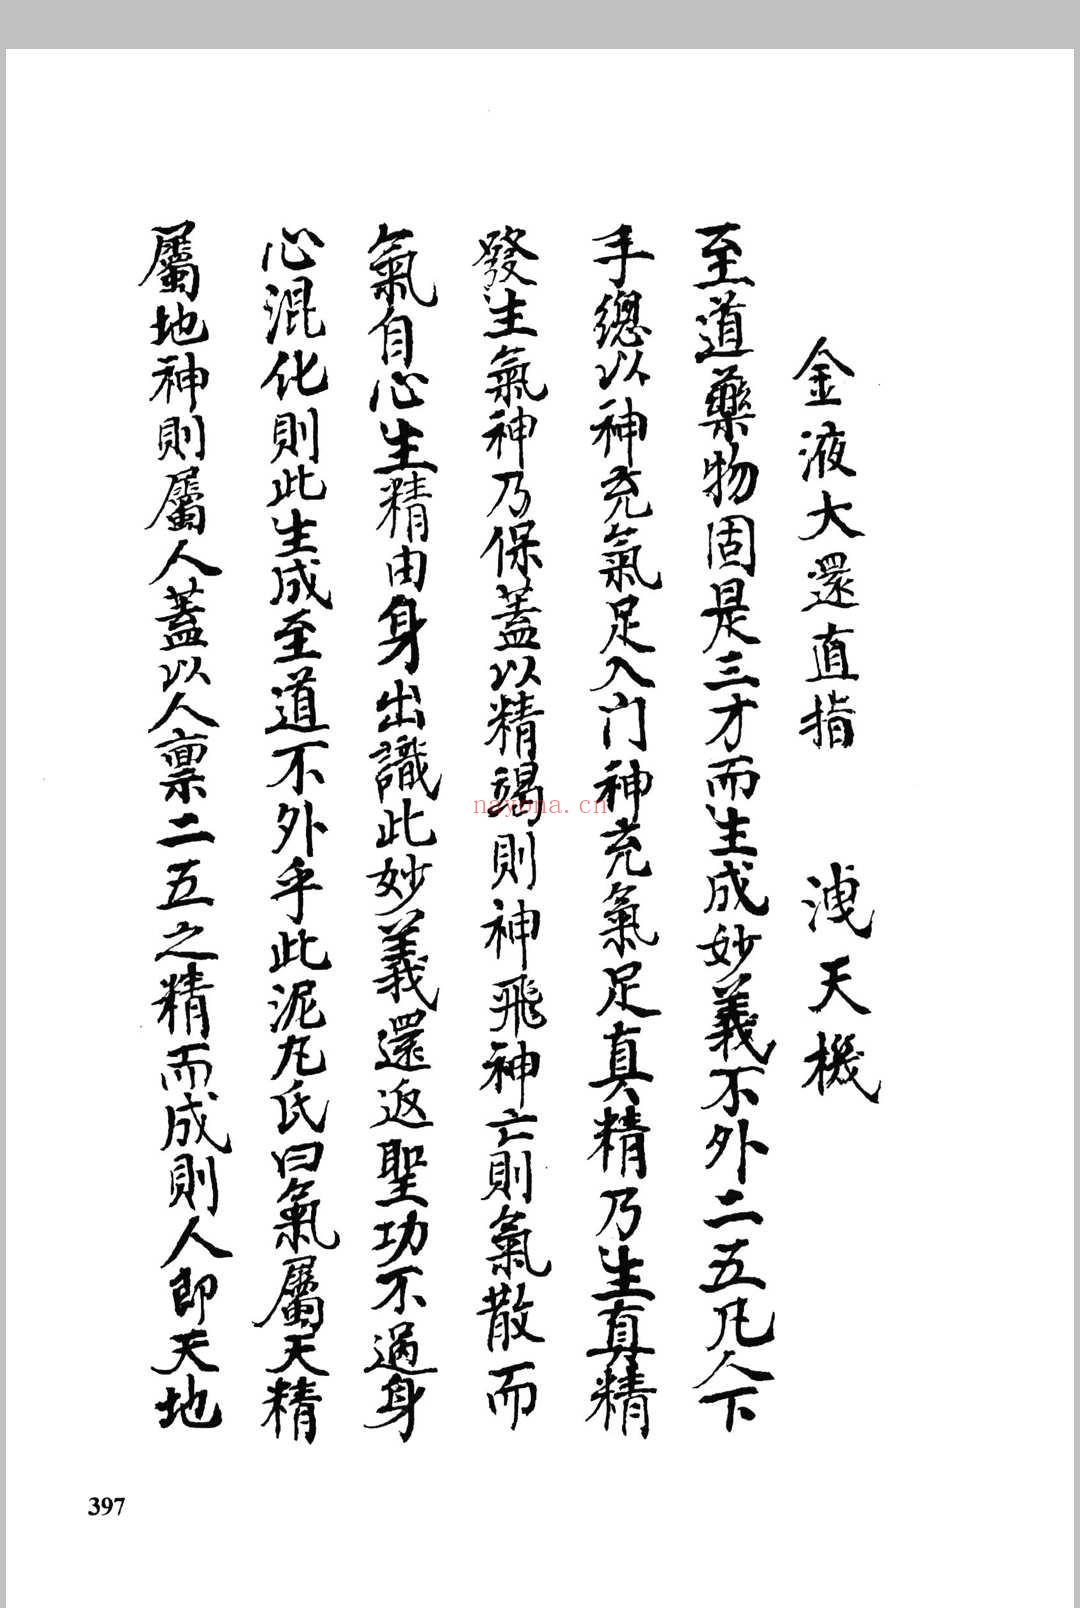 金液大還直指 洩天機
至道藥物固是三才而生成妙義不外二五凡人下
手總以神充氣足入门神充氣足真精乃生真精
發生氣神乃保蓋以精竭則神飛神亡則氣散而
氣自心生精由身出識此妙義還返聖功不過身
心混化則此生成至道不外乎此泥丸氏曰氣屬天精
屬地神則屬人蓋以人禀二五之精而成則人即天地
nayona.cn
397